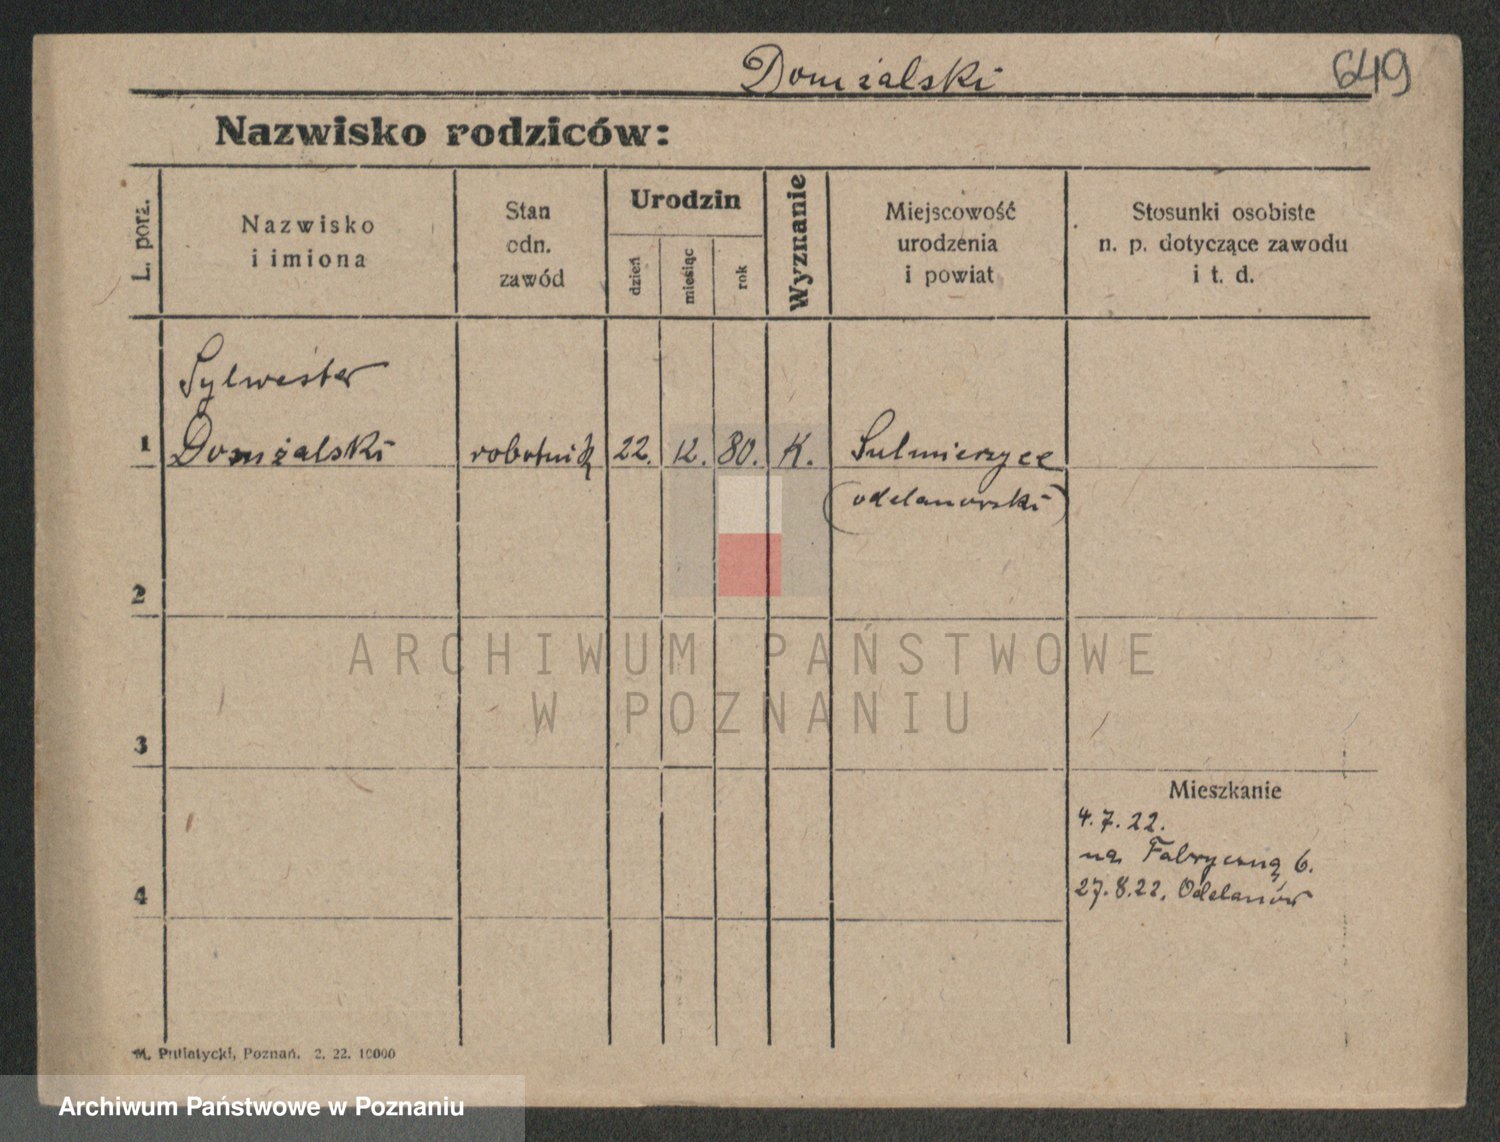 Domżalski
649
Nazwisko rodziców:
L. porz.
Nazwisko
i imiona
Stan
odn.
zawód
Urodzin
dzień
miesiąc
rok
Wyznanie
Miejscowość
urodzenia
i powiat
Stosunki osobiste
n. p. dotyczące zawodu
i t. d.
Sylwester
1 Domżalski robotnik 22. 12. 80. K. Sulmierzyce
(odolanowski)
2
3
4
Mieszkanie
4.7.22.
na Fabryczną 6.
27.8.22. Odolanów
M. Putiatycki, Poznań. 2. 22. 10000
ARCHIWUM PAŃSTWOWE
W POZNANIU
Archiwum Państwowe w Poznaniu